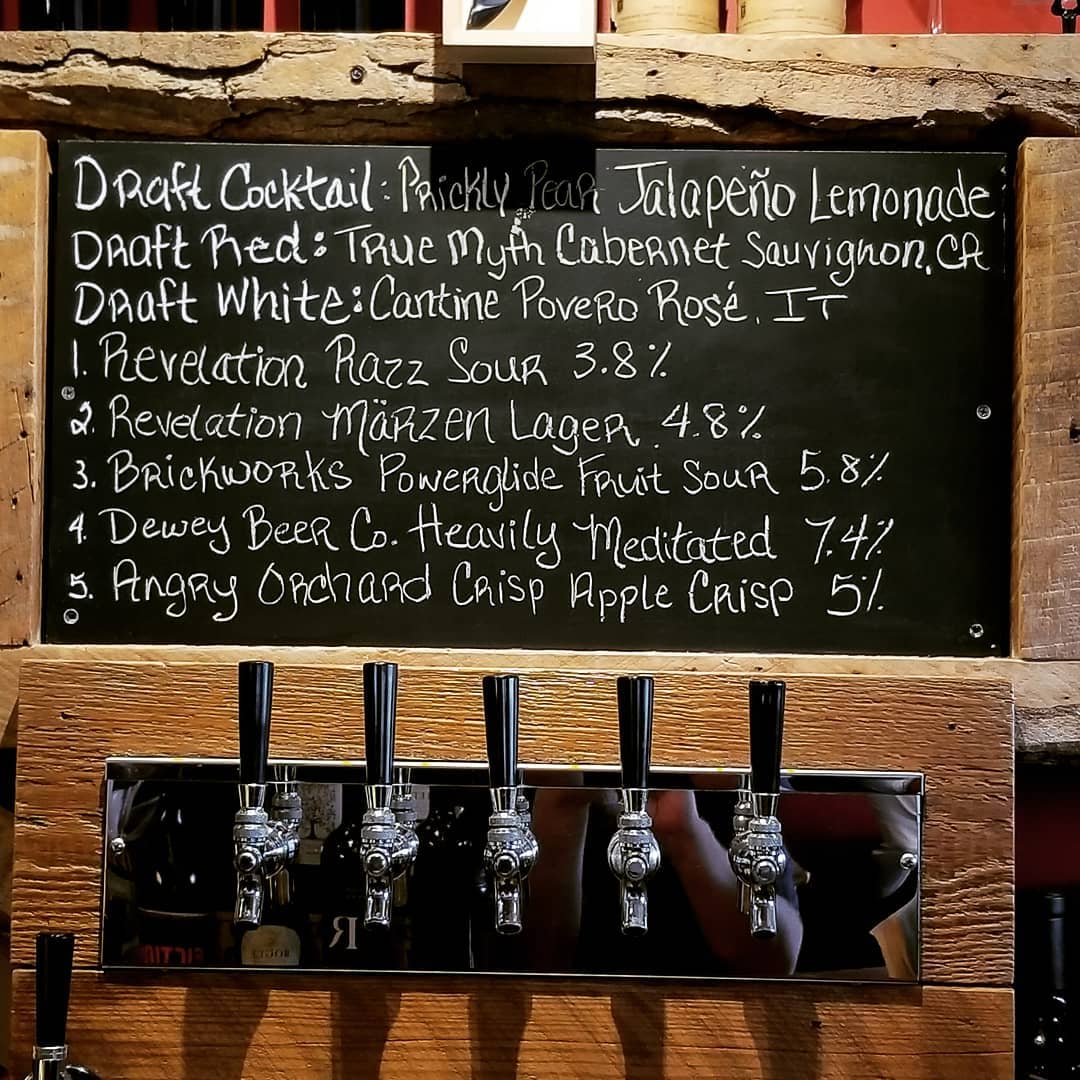 Draft Cocktail: Prickly Pear Jalapeño Lemonade
Draft Red: True Myth Cabernet Sauvignon, CA
Draft White: Cantine Povero Rosé, IT
1. Revelation Razz Sour 3.8%
2. Revelation Märzen Lager 4.8%
3. Brickworks Powerglide Fruit Sour 5.8%
4. Dewey Beer Co. Heavily Meditated 7.4%
5. Angry Orchard Crisp Apple Crisp 5%
R